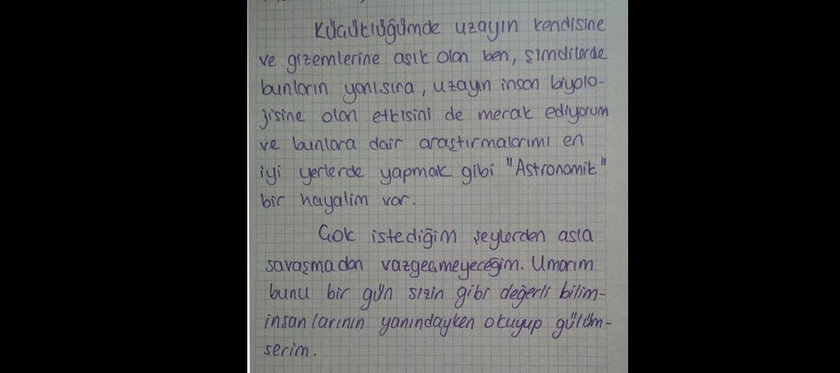 Küçüklüğümde uzayın kendisine
ve gizemlerine aşık olan ben, şimdilerde
bunların yanısıra, uzayın insan biyolo-
jisine olan etkisini de merak ediyorum
ve bunlara dair araştırmalarımı en
iyi yerlerde yapmak gibi "Astronomik"
bir hayalim var.
Çok istediğim şeylerden asla
savaşmadan vazgeçmeyeceğim. Umarım
bunu bir gün sizin gibi değerli bilim-
insanlarının yanındayken okuyup gülüm-
serim.